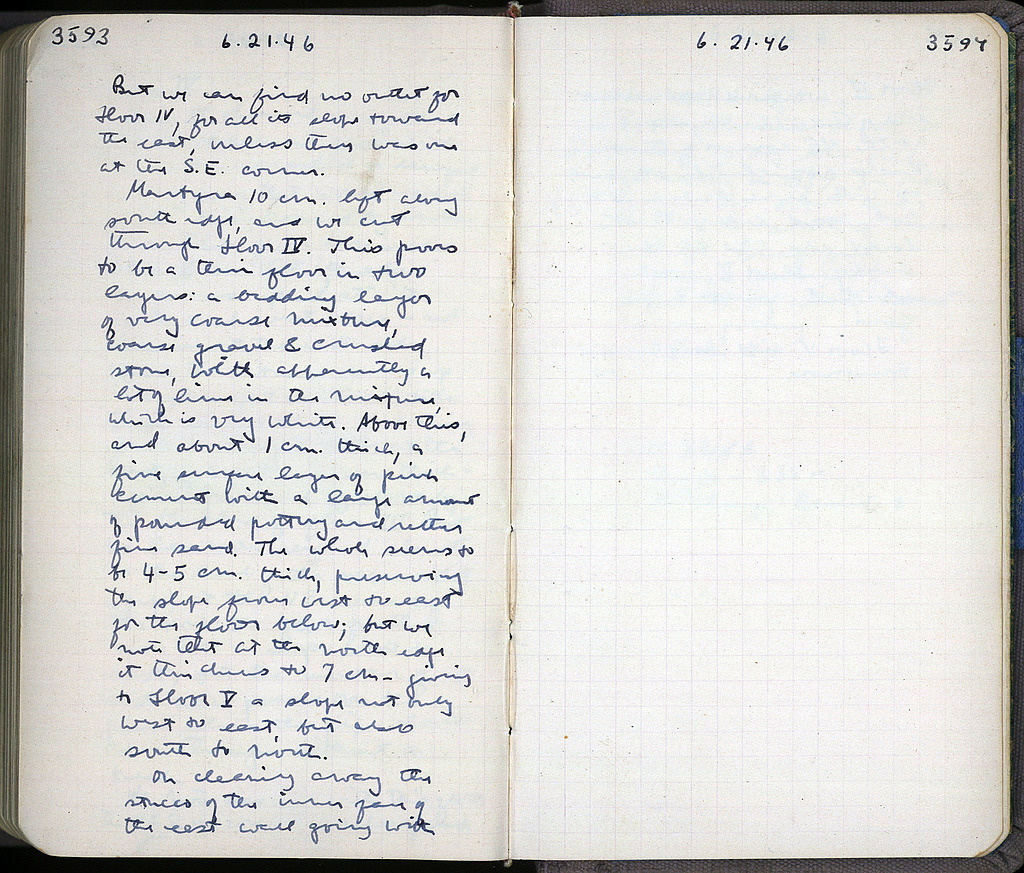 3593
6.21.46
But we can find no outlet for
Floor IV, for all its slope toward
the east, unless there was one
at the S.E. corner.
Martyra 10 cm. left along
south edge, and we cut
through Floor IV. This proves
to be a thin floor in two
layers: a bedding layer
of very coarse mixture,
coarse gravel & crushed
stone, with apparently a
lot of lime in the mixture,
which is very white. Above this,
and about 1 cm. thick, a
fine surface layer of pink
cement with a large amount
of pounded pottery and rather
fine sand. The whole seems to
be 4-5 cm. thick, preserving
the slope from west to east
for the floor below; but we
note that at the north edge
it thickens to 7 cm - giving
to Floor V a slope not only
west to east, but also
south to north.
On cleaning away the
stucco of the inner face of
the east wall going with
6.21.46
3594